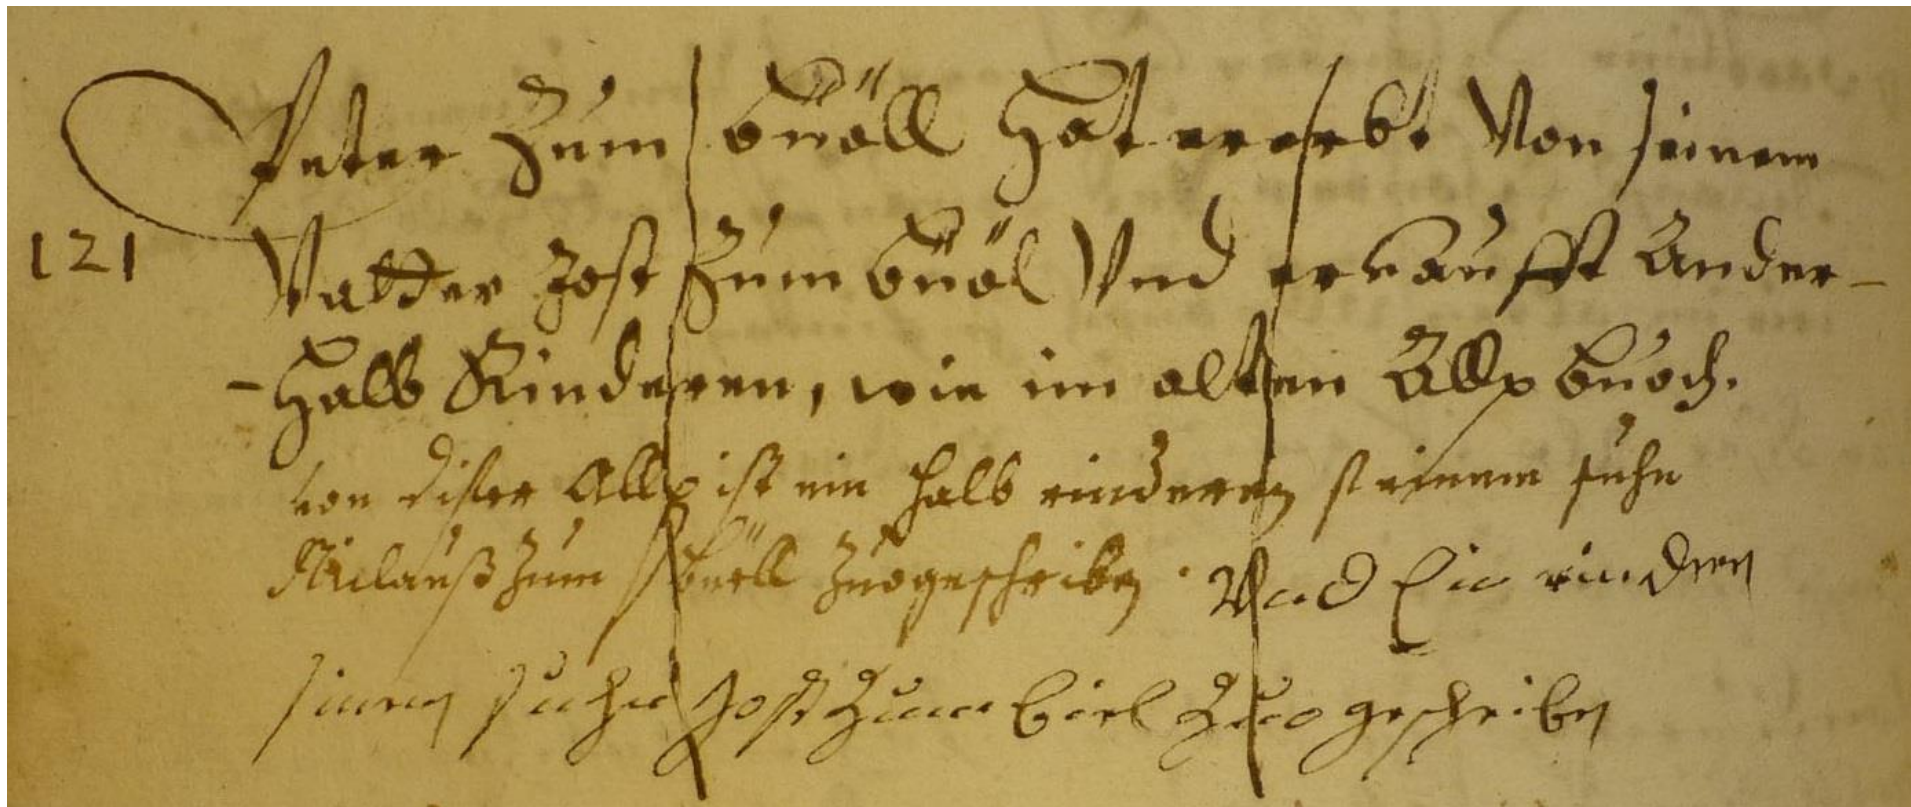 Peter Zum büöll Hat ererbt Von seinem
121 Vatter Jost Zum büöl Vnd erkaufft Ander-
-Halb Rinderen, wie im alten Allp buoch.
von diser Allp ist ein halb rinderen seinem suhn
Niclauß zum büell zuogeschriben. Vnd Ein rinderen
sinen suhn Jost Zum biel Zuo geschriben